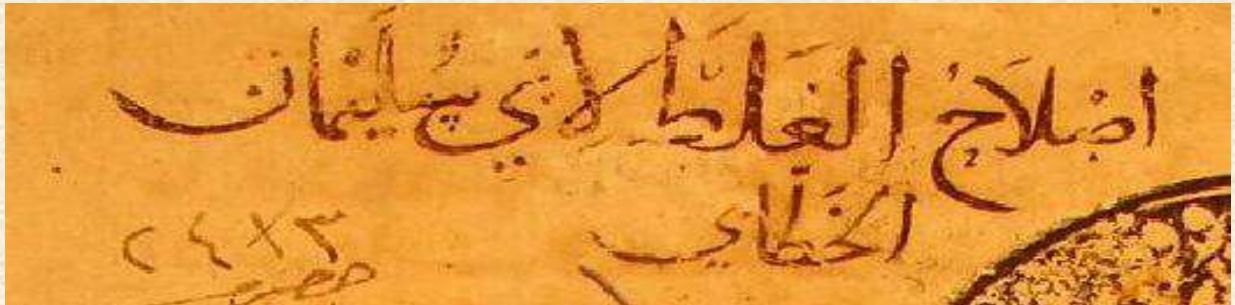 اصْلَاحُ الغَلَطَ لابي سُلَيْمان
الخَطَّابي